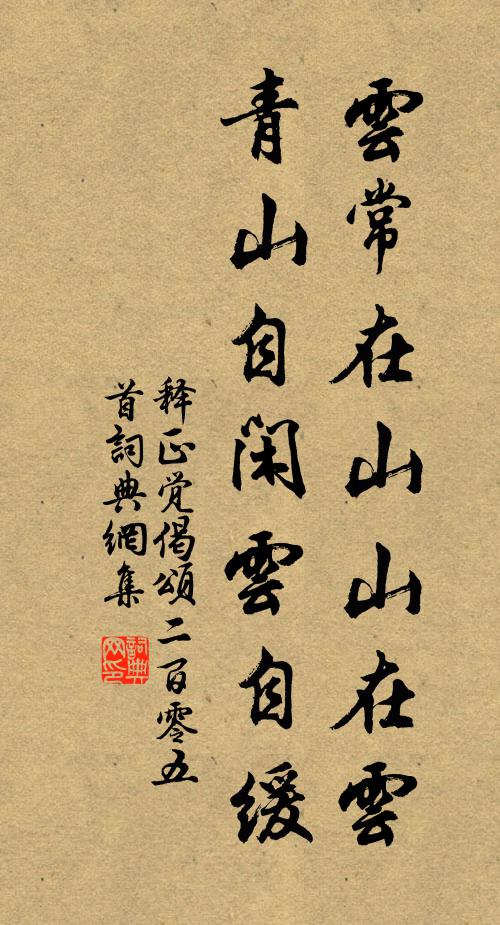 雲常在山山在雲
青山自閑雲自緩
释正觉偈頌二百零五
首詞典網集
詞典
网印